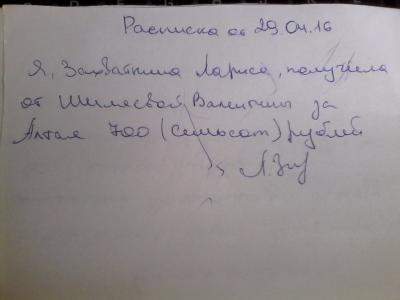 Расписка от 29.04.16
Я, Захваткина Лариса, получила
от Шиляевой Валентины за
700 (семьсот) рублей